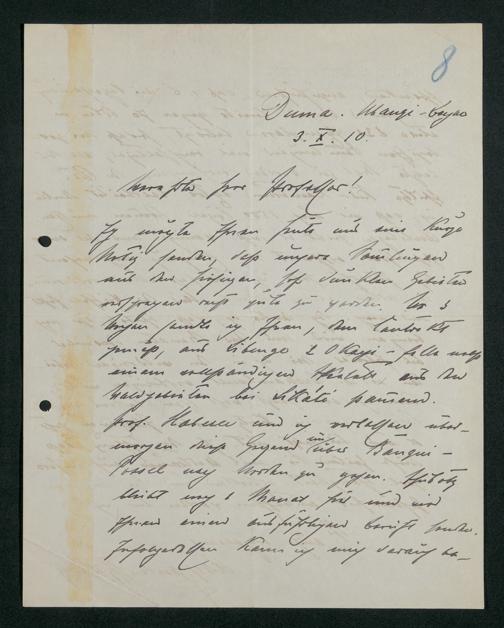 8
Duma. Ubangi-Congo
3. X. 10.
Verehrter Herr Professor!
Ich möchte Ihnen heute nur eine kurze
Notiz senden, daß unsere Sammlungen
aus den hiesigen, sehr dunklen Gebieten
recht gut zu werden. Vor 3
Wochen sandte ich Ihnen, dem
aus Libenge 2 Okapi-Felle nebst
einem vollständigen Skelett aus den
Waldgebieten bei stammend.
Prof. Haberer und ich verlassen über-
morgen diese Gegend um über Bangui-
Possel nach Norden zu gehen. Schubotz
bleibt noch 1 Monat hier und wird
Ihnen einen ausführlichen Bericht senden.
Infolgedessen kann ich mich darauf be-